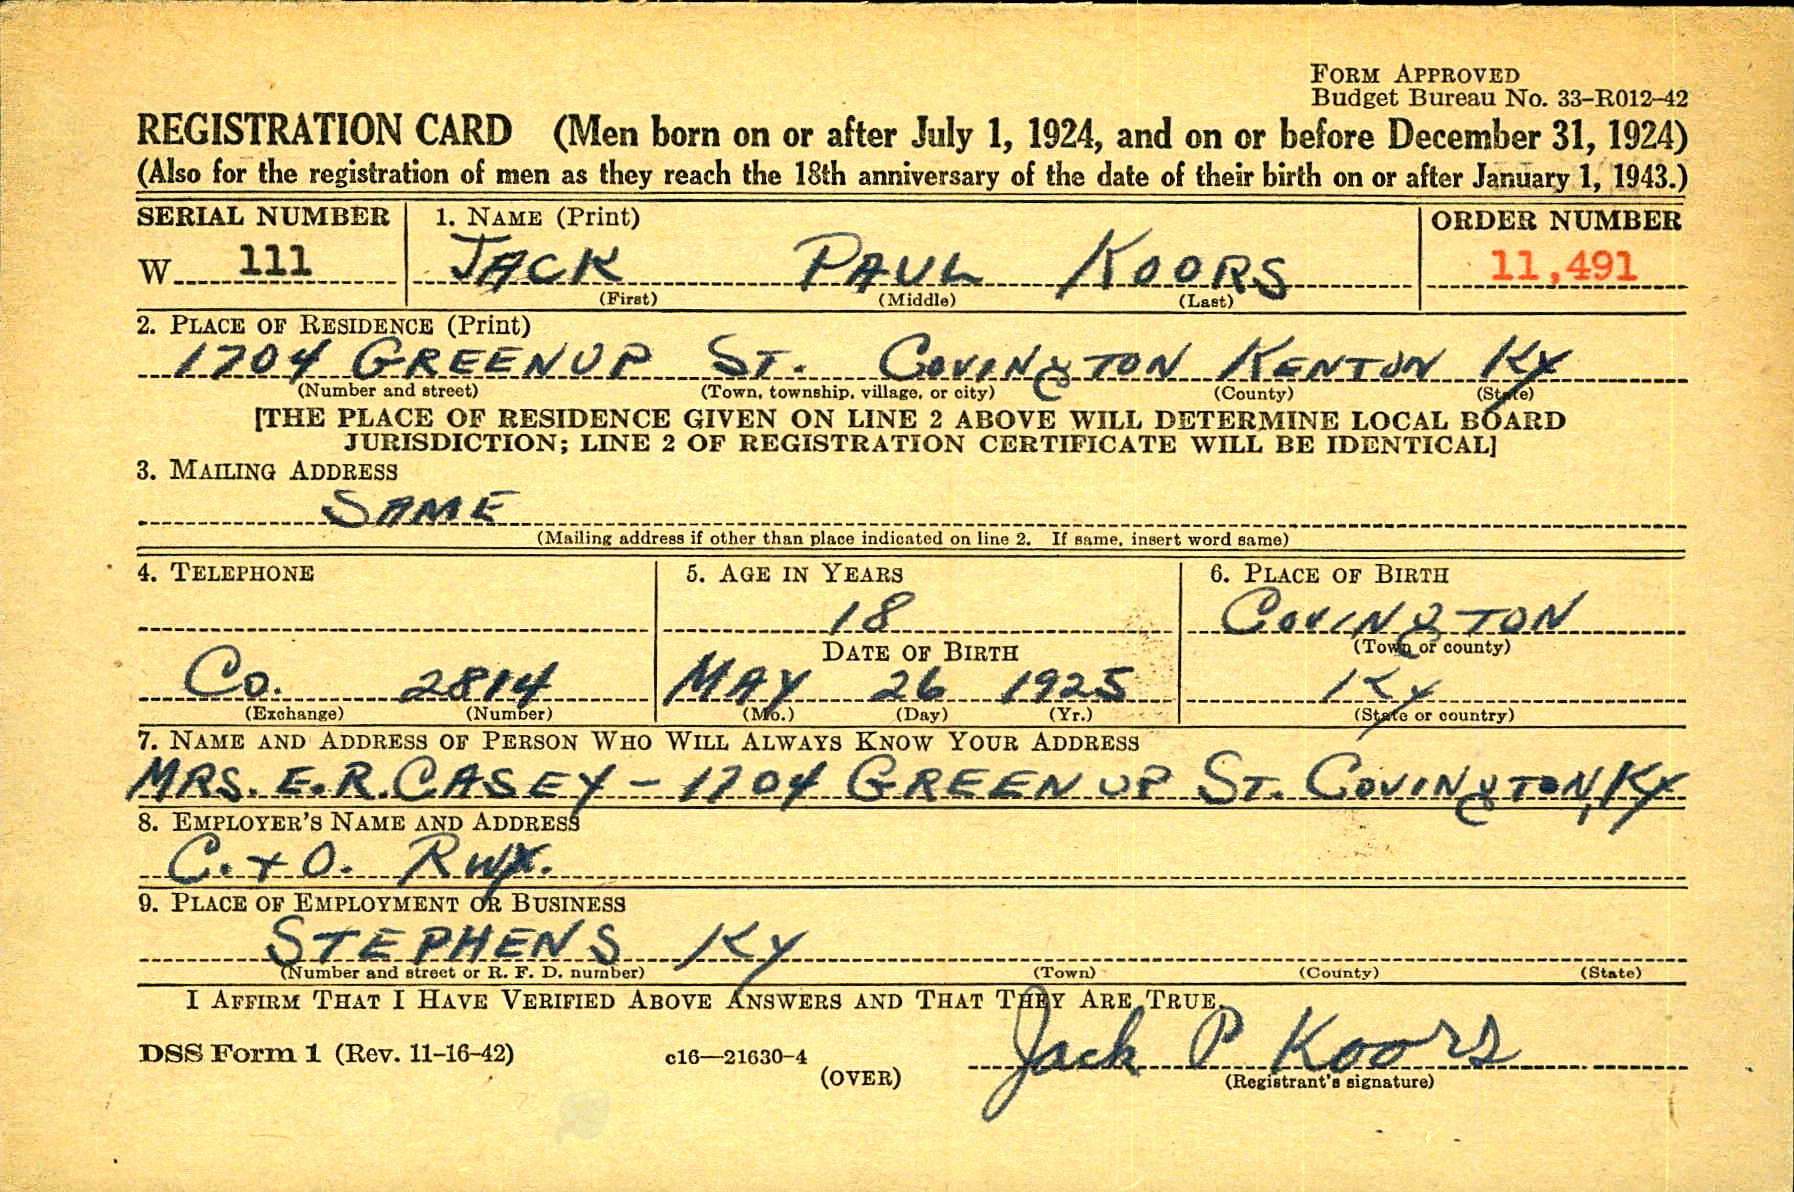 FORM APPROVED
Budget Bureau No. 33-R012-42
REGISTRATION CARD (Men born on or after July 1, 1924, and on or before December 31, 1924)
(Also for the registration of men as they reach the 18th anniversary of the date of their birth on or after January 1, 1943.)
SERIAL NUMBER 1. NAME (Print) ORDER NUMBER
W 111 JACK PAUL KOORS 11,491
(First) (Middle) (Last)
2. PLACE OF RESIDENCE (Print)
1704 GREENUP ST. COVINGTON KENTON KY
(Number and street) (Town, township, village, or city) (County) (State)
[THE PLACE OF RESIDENCE GIVEN ON LINE 2 ABOVE WILL DETERMINE LOCAL BOARD
JURISDICTION; LINE 2 OF REGISTRATION CERTIFICATE WILL BE IDENTICAL]
3. MAILING ADDRESS
SAME
(Mailing address if other than place indicated on line 2. If same, insert word same)
4. TELEPHONE 5. AGE IN YEARS 6. PLACE OF BIRTH
18 COVINGTON
DATE OF BIRTH (Town or county)
Co. 2814 MAY 26 1925 KY
(Exchange) (Number) (Mo.) (Day) (Yr.) (State or country)
7. NAME AND ADDRESS OF PERSON WHO WILL ALWAYS KNOW YOUR ADDRESS
MRS. E.R. CASEY - 1704 GREENUP ST. COVINGTON, KY
8. EMPLOYER'S NAME AND ADDRESS
C. + O. RWY.
9. PLACE OF EMPLOYMENT OR BUSINESS
STEPHENS KY
(Number and street or R. F. D. number) (Town) (County) (State)
I AFFIRM THAT I HAVE VERIFIED ABOVE ANSWERS AND THAT THEY ARE TRUE.
DSS Form 1 (Rev. 11-16-42) c16—21630-4 Jack P Koors
(OVER) (Registrant's signature)